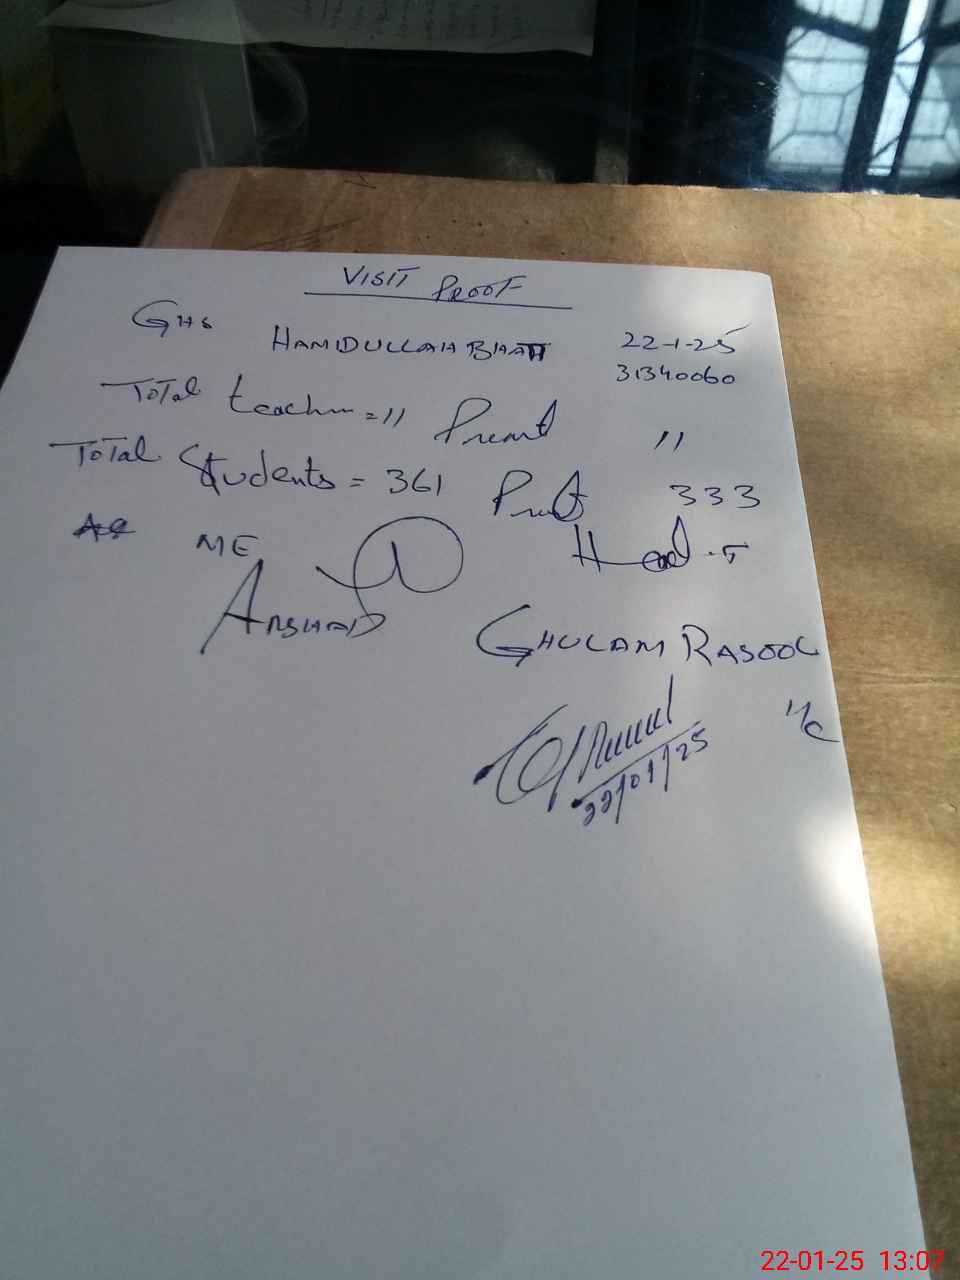 VISIT PROOF
GHS HAMIDULLAH BHATTI 22-1-25
31340060
Total teachers = 11 Present 11
Total Students = 361 Present 333
ME Head.T
ARSHAD GHULAM RASOOL
I/C
22/01/25
22-01-25 13:07